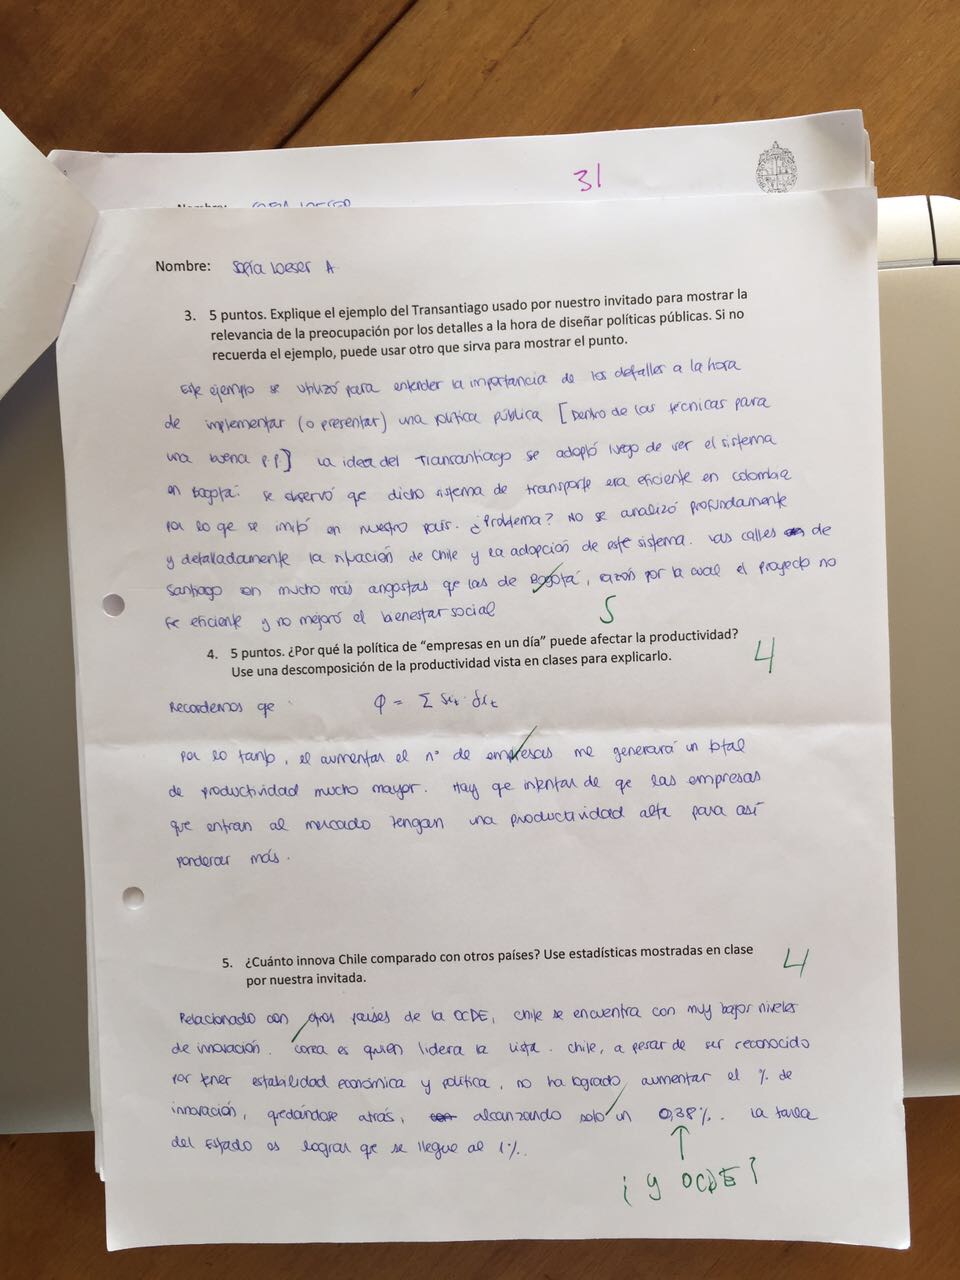 31
Nombre:
Nombre: Sofía Loeser A.
3. 5 puntos. Explique el ejemplo del Transantiago usado por nuestro invitado para mostrar la
relevancia de la preocupación por los detalles a la hora de diseñar políticas públicas. Si no
recuerda el ejemplo, puede usar otro que sirva para mostrar el punto.
Este ejemplo se utilizó para entender la importancia de los detalles a la hora
de implementar (o presentar) una política pública [Dentro de las técnicas para
una buena P.P] La idea del Transantiago se adoptó luego de ver el sistema
en Bogotá: se observó qe dicho sistema de transporte era eficiente en Colombia
por lo qe se imitó en nuestro país. ¿Problema? No se analizó profundamente
y detalladamente la situación de Chile y la adopción de este sistema. Las calles de
Santiago son mucho más angostas qe las de Bogotá, razón por la cual el proyecto no
fe eficiente y no mejoró el bienestar social
5
4. 5 puntos. ¿Por qué la política de “empresas en un día” puede afectar la productividad?
Use una descomposición de la productividad vista en clases para explicarlo.
4
Recordemos qe
Por lo tanto, el aumentar el n° de empresas me generará un total
de productividad mucho mayor. Hay qe intentar de qe las empresas
qe entran al mercado tengan una productividad alta para así
ponderar más.
5. ¿Cuánto innova Chile comparado con otros países? Use estadísticas mostradas en clase
por nuestra invitada.
4
Relacionado con otros países de la OCDE, Chile se encuentra con muy bajos niveles
de innovación. Corea es quien lidera la lista. Chile, a pesar de ser reconocido
por tener estabilidad económica y política, no ha logrado aumentar el % de
innovación, qedándose atrás, alcanzando solo un 0,38%. La tarea
del Estado es lograr qe se llegue al 1%.
¿y OCDE?